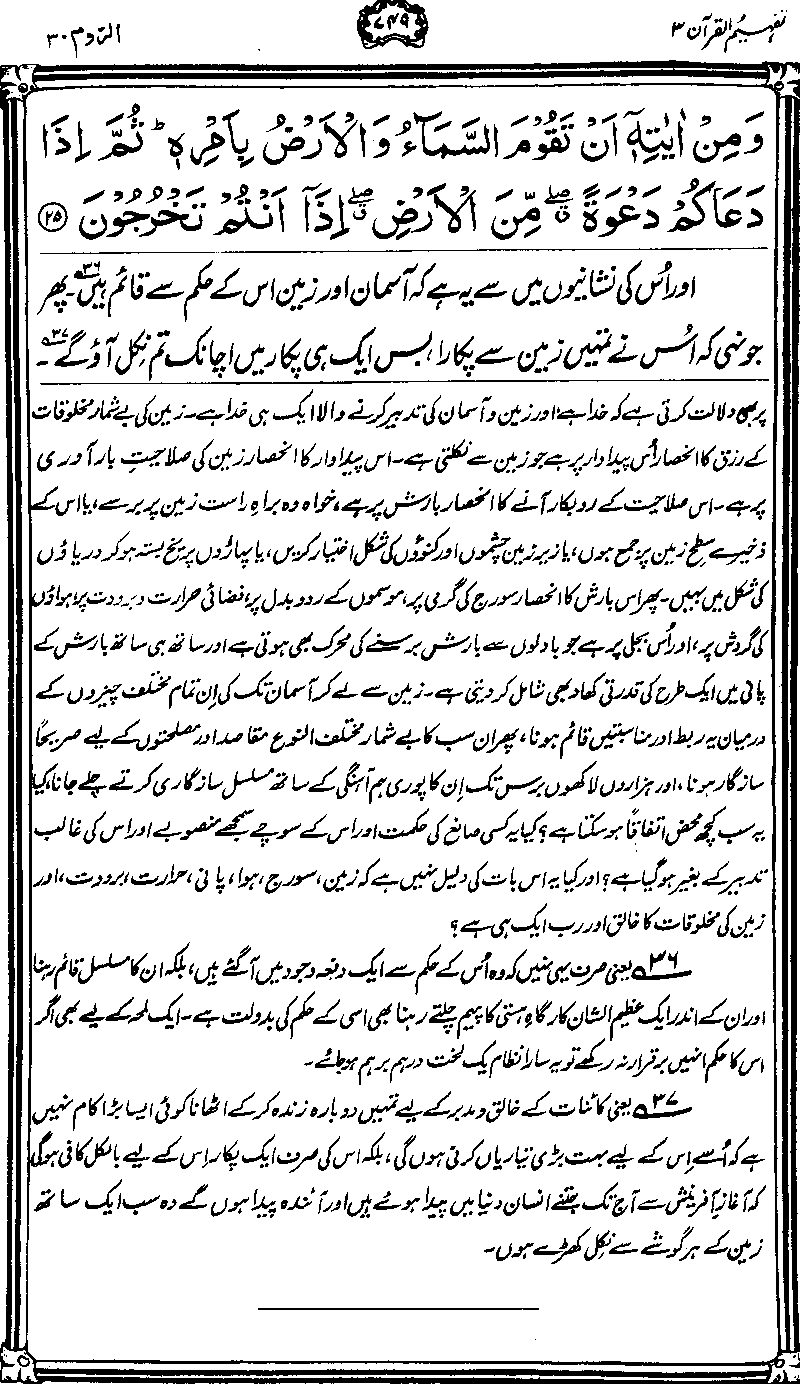 تفہیم القرآن ۳
۷۴۹
الرّوم ۳۰
وَمِنْ اٰيٰتِهٖۤ اَنْ تَقُوْمَ السَّمَآءُ وَالْاَرْضُ بِاَمْرِهٖ ؕ ثُمَّ اِذَا
دَعَاكُمْ دَعْوَةً ۖۗ مِّنَ الْاَرْضِ ۖۗ اِذَاۤ اَنْتُمْ تَخْرُجُوْنَ ﴿۲۵﴾
اور اُس کی نشانیوں میں سے یہ ہے کہ آسمان اور زمین اس کے حکم سے قائم ہیں۔۳۶ پھر
جونہی کہ اُس نے تمہیں زمین سے پکارا، بس ایک ہی پکار میں اچانک تم نکل آؤ گے۳۷۔
پر بھی دلالت کرتی ہے کہ خدا ہے، اور زمین و آسمان کی تدبیر کرنے والا ایک ہی خدا ہے۔ زمین کی بے شمار مخلوقات
کے رزق کا انحصار اُس پیداوار پر ہے جو زمین سے نکلتی ہے۔ اس پیداوار کا انحصار زمین کی صلاحیتِ بار آوری
پر ہے۔ اس صلاحیت کے روبکار آنے کا انحصار بارش پر ہے، خواہ وہ براہِ راست زمین پر برسے، یا اس کے
ذخیرے سطحِ زمین پر جمع ہوں، یا زیرِ زمین چشموں اور کنوؤں کی شکل اختیار کریں، یا پہاڑوں پر یخ بستہ ہو کر دریاؤں
کی شکل میں بہیں۔ پھر اس بارش کا انحصار سورج کی گرمی پر، موسموں کے ردو بدل پر، فضائی حرارت و برودت پر، ہواؤں
کی گردش پر، اور اُس بجلی پر ہے جو بادلوں سے بارش برسنے کی محرک بھی ہوتی ہے اور ساتھ ہی ساتھ بارش کے
پانی میں ایک طرح کی قدرتی کھاد بھی شامل کر دیتی ہے۔ زمین سے لے کر آسمان تک کی اِن تمام مختلف چیزوں کے
درمیان یہ ربط اور مناسبتیں قائم ہونا، پھر ان سب کا بے شمار مختلف النوع مقاصد اور مصلحتوں کے لیے صریحاً
سازگار ہونا، اور ہزاروں لاکھوں برس تک اِن کا پوری ہم آہنگی کے ساتھ مسلسل سازگاری کرتے چلے جانا، کیا
یہ سب کچھ محض اتفاقاً ہو سکتا ہے؟ کیا یہ کسی صانع کی حکمت اور اس کے سوچے سمجھے منصوبے اور اس کی غالب
تدبیر کے بغیر ہو گیا ہے؟ اور کیا یہ اس بات کی دلیل نہیں ہے کہ زمین، سورج، ہوا، پانی، حرارت، برودت، اور
زمین کی مخلوقات کا خالق اور رب ایک ہی ہے؟
۳۶ یعنی صرف یہی نہیں کہ وہ اُس کے حکم سے ایک دفعہ وجود میں آ گئے ہیں، بلکہ ان کا مسلسل قائم رہنا
اور ان کے اندر ایک عظیم الشان کارگاہِ ہستی کا پیہم چلتے رہنا بھی اسی کے حکم کی بدولت ہے۔ ایک لمحہ کے لیے بھی اگر
اس کا حکم انہیں برقرار نہ رکھے تو یہ سارا نظام یک لخت درہم برہم ہو جائے۔
۳۷ یعنی کائنات کے خالق و مدبر کے لیے تمہیں دوبارہ زندہ کر کے اٹھانا کوئی ایسا بڑا کام نہیں
ہے کہ اُسے اِس کے لیے بہت بڑی تیاریاں کرنی ہوں گی، بلکہ اس کی صرف ایک پکار اِس کے لیے بالکل کافی ہوگی
کہ آغازِ آفرینش سے آج تک جتنے انسان دنیا میں پیدا ہوئے ہیں اور آئندہ پیدا ہوں گے وہ سب ایک ساتھ
زمین کے ہر گوشے سے نکل کھڑے ہوں۔